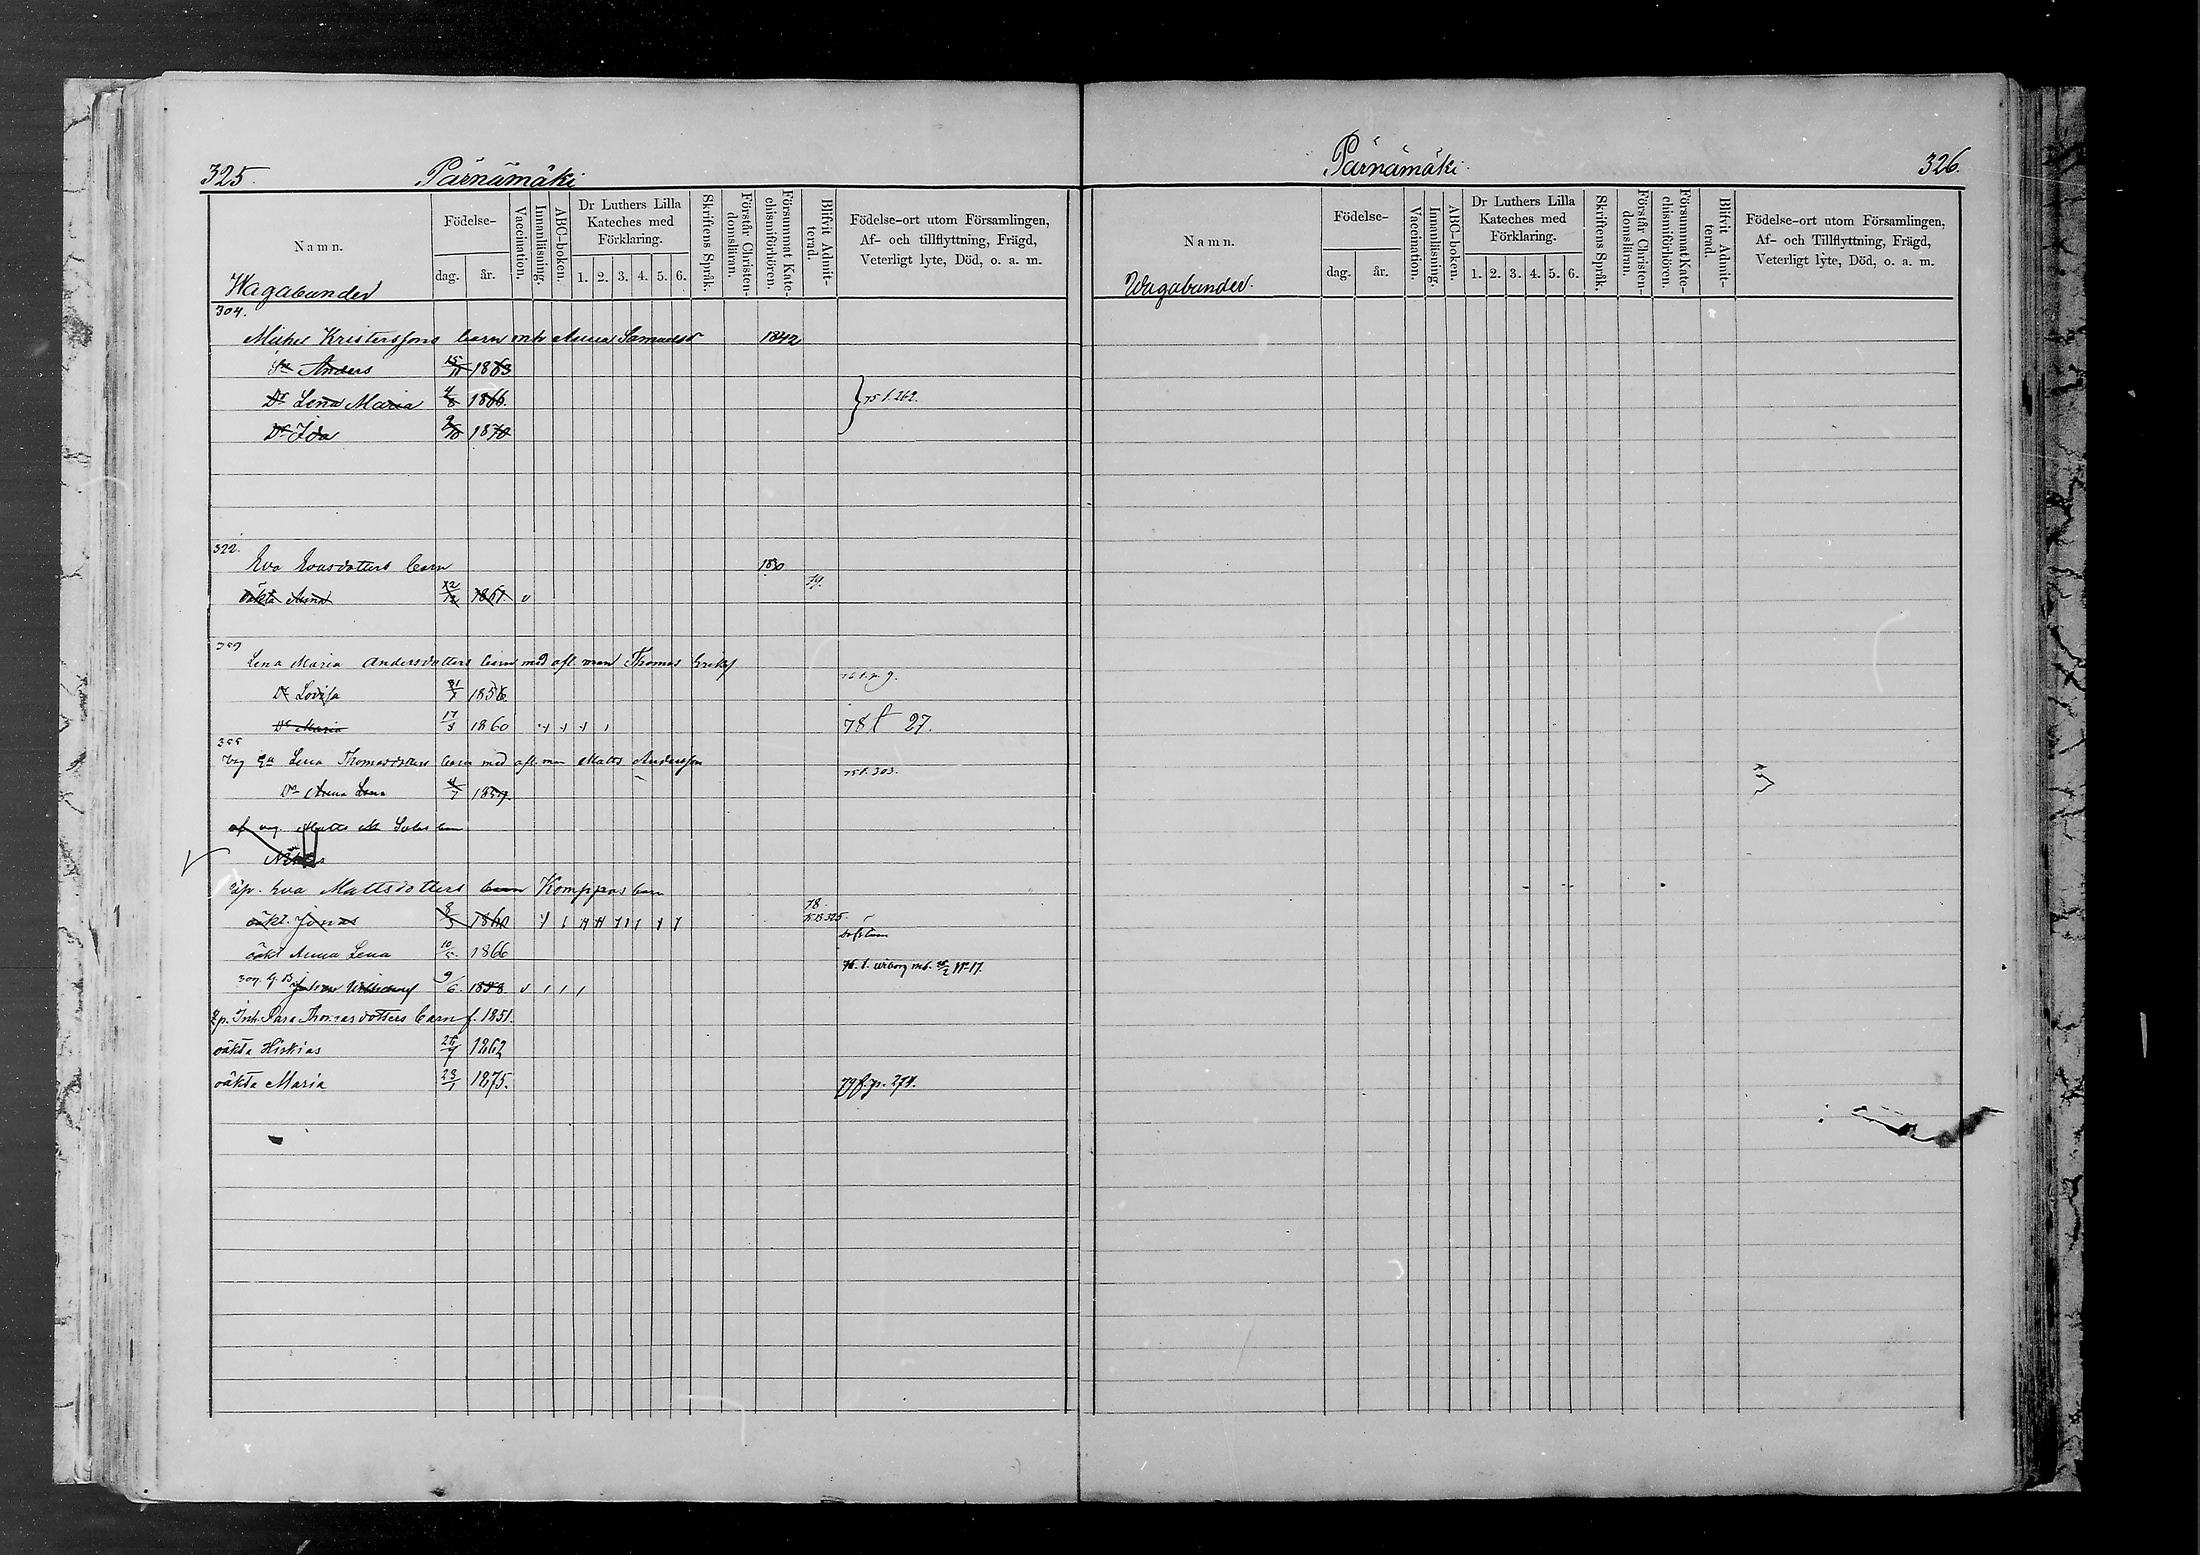 325.
Pärnämäki
Namn.
Födelse-
dag.
år.
Vaccination.
Innanläsning.
ABC-boken.
Dr Luthers Lilla Kateches med Förklaring.
1. 2. 3. 4. 5. 6.
Skriftens Språk.
Förstår Christendomsläran.
Försummat Katechismiförhören.
Blifvit Admitterad.
Födelse-ort utom Församlingen,
Af- och tillflyttning, Frägd,
Veterligt lyte, Död, o. a. m.
Wagabunder
304.
Michel Kristersons barn mh Anna Samuelsd 1842
Sn Anders 15/11 1863
Dr Lena Maria 1866.
Dr Ida 1870
75 f. 262.
322.
Eva Evasdotters barn 1830
oäkta Anna 1861. v 79.
Lena Maria Andersdotters barn med afl. man Thomas Eriksf
Dr Lovisa 1856.
Dr Maria 17/3 1860 78 f 27.
Lena Thomasdotters barn med afl. man Matts Andersson
75 f. 303.
Dr Anna Lena 1859
Eva Mattsdotters barn Komppas barn
oäkt. Jonas 1860 78
oäkt Anna Lena 10/5 1866
9/6. 1858. v
Inh. Sara Thomasdotters barn f. 1851.
oäkta Hiskias 1862
oäkta Maria 23/1 1875. 79 f. p. 274.
Pärnämäki.
326.
Namn.
Födelse-
dag.
år.
Vaccination.
Innanläsning.
ABC-boken.
Dr Luthers Lilla Kateches med Förklaring.
1. 2. 3. 4. 5. 6.
Skriftens Språk.
Förstår Christendomsläran.
Försummat Katechismiförhören.
Blifvit Admitterad.
Födelse-ort utom Församlingen,
Af- och Tillflyttning, Frägd,
Veterligt lyte, Död, o. a. m.
Wagabunder.